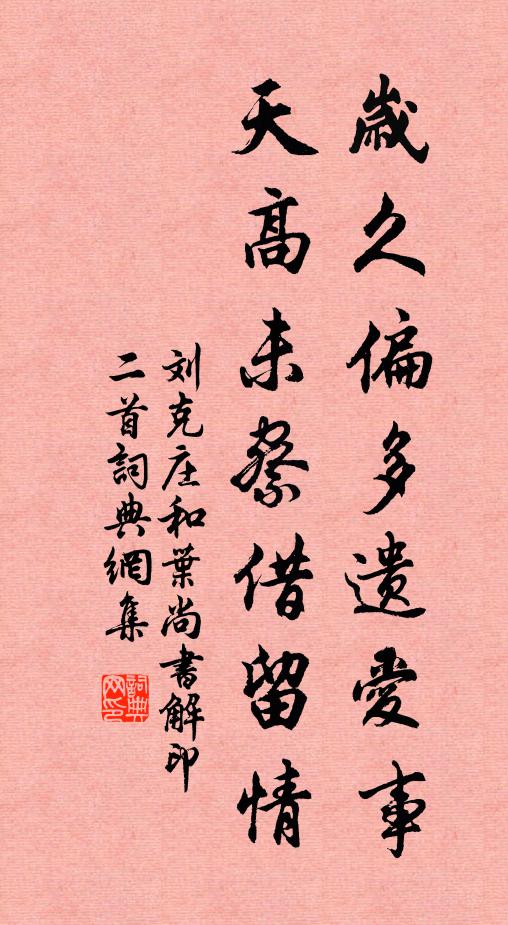 歲久偏多遺愛事
天高未察借留情
刘克庄和葉尚書解印
二首詞典網集
詞典
网印